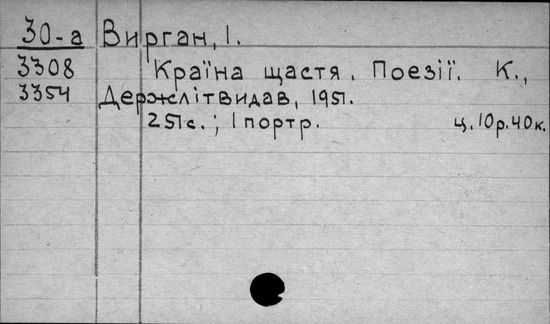 30-а Вирган, І.
3308 Країна щастя. Поезії. К.,
3354 Держлітвидав, 1951.
251с.; 1 портр. ц. 10р. 40к.